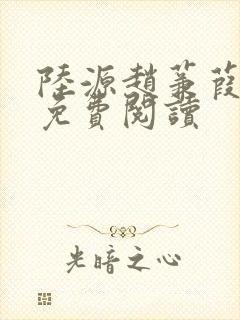 陸源趙蒹葭
免費閱讀
光暗之心